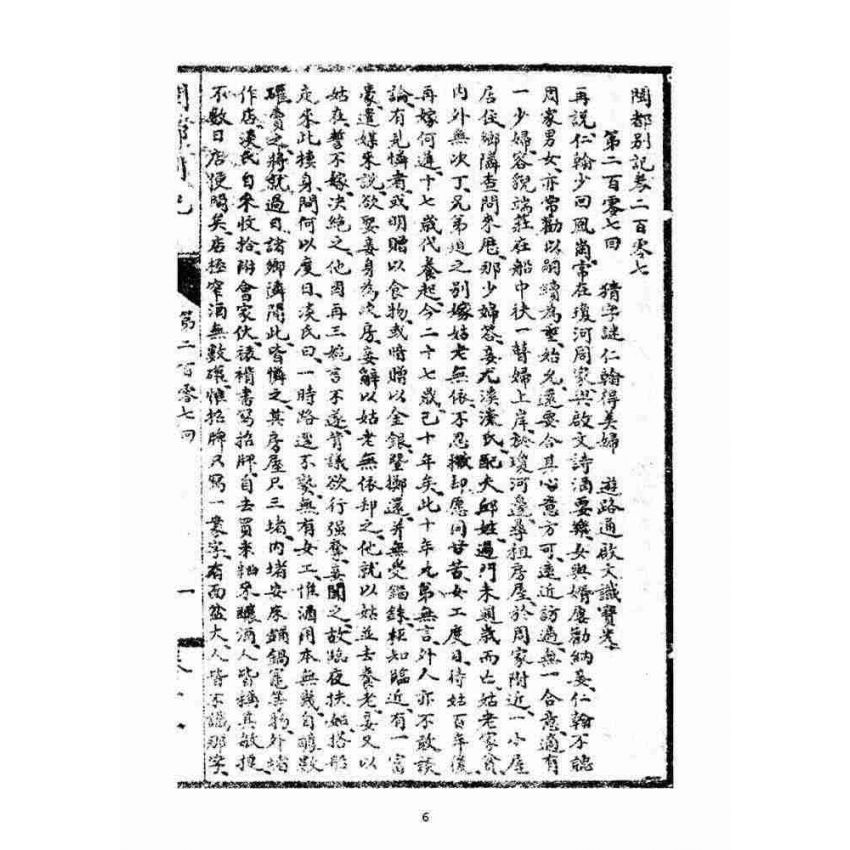 閩都別記卷二百零七
第二百零七回　猜字謎仁翰得美婦　遊路通啟文識寶卷
再說仁翰少回鳳崗常在瓊河周家與啟文詩酒耍樂女與婿屢勸納妾仁翰不聽
周家男女亦常勸以嗣續為重始允還要合其心意方可遠近訪遍無一合意適有
一少婦容貌端莊在船中扶一瞽婦上岸於瓊河邊尋租房屋於周家附近一小屋
居住鄉隣查問來歷那少婦答妾尤溪淡氏配夫邱姓過門未週歲而亡姑老家貧
內外無次丁兄弟迫之別嫁姑老無依不忍撇却愿同甘苦女工度日待姑百年後
再嫁何遲十七歲代養起今二十七歲已十年矣此十年兄弟無言外人亦不敢談
論有見憐者或明贈以食物或暗贈以金銀暨擲還并無受錙銖極知臨近有一富
豪遣媒來說欲娶妾身為次房妾辭以姑老無依却之他就以姑並去養老妾又以
姑在誓不嫁決絕之他因再三婉言不遂背議欲行强奪妾聞之故臨夜扶姑搭船
走來此棲身問何以度日淡氏曰一時路還不熟無有女工惟酒用本無幾自釀數
確賣之將就過日諸鄉隣聞此皆憐之其房屋只三堵內堵安床鋪鍋竈等物外堵
作店淡氏自來收拾附會家伙裱褙書寫招牌自去買來麯來釀酒人皆稱其敏捷
不數日店便開矣店極窄酒無數碗惟招牌只寫一裹字有兩盆大人皆不識那字
閩都別記
第二百零七回
一
6